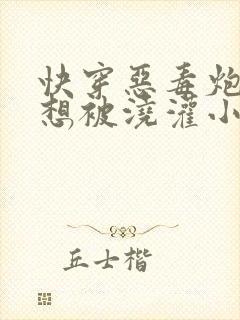 快穿恶毒炮
想被浇灌小
丘士楷